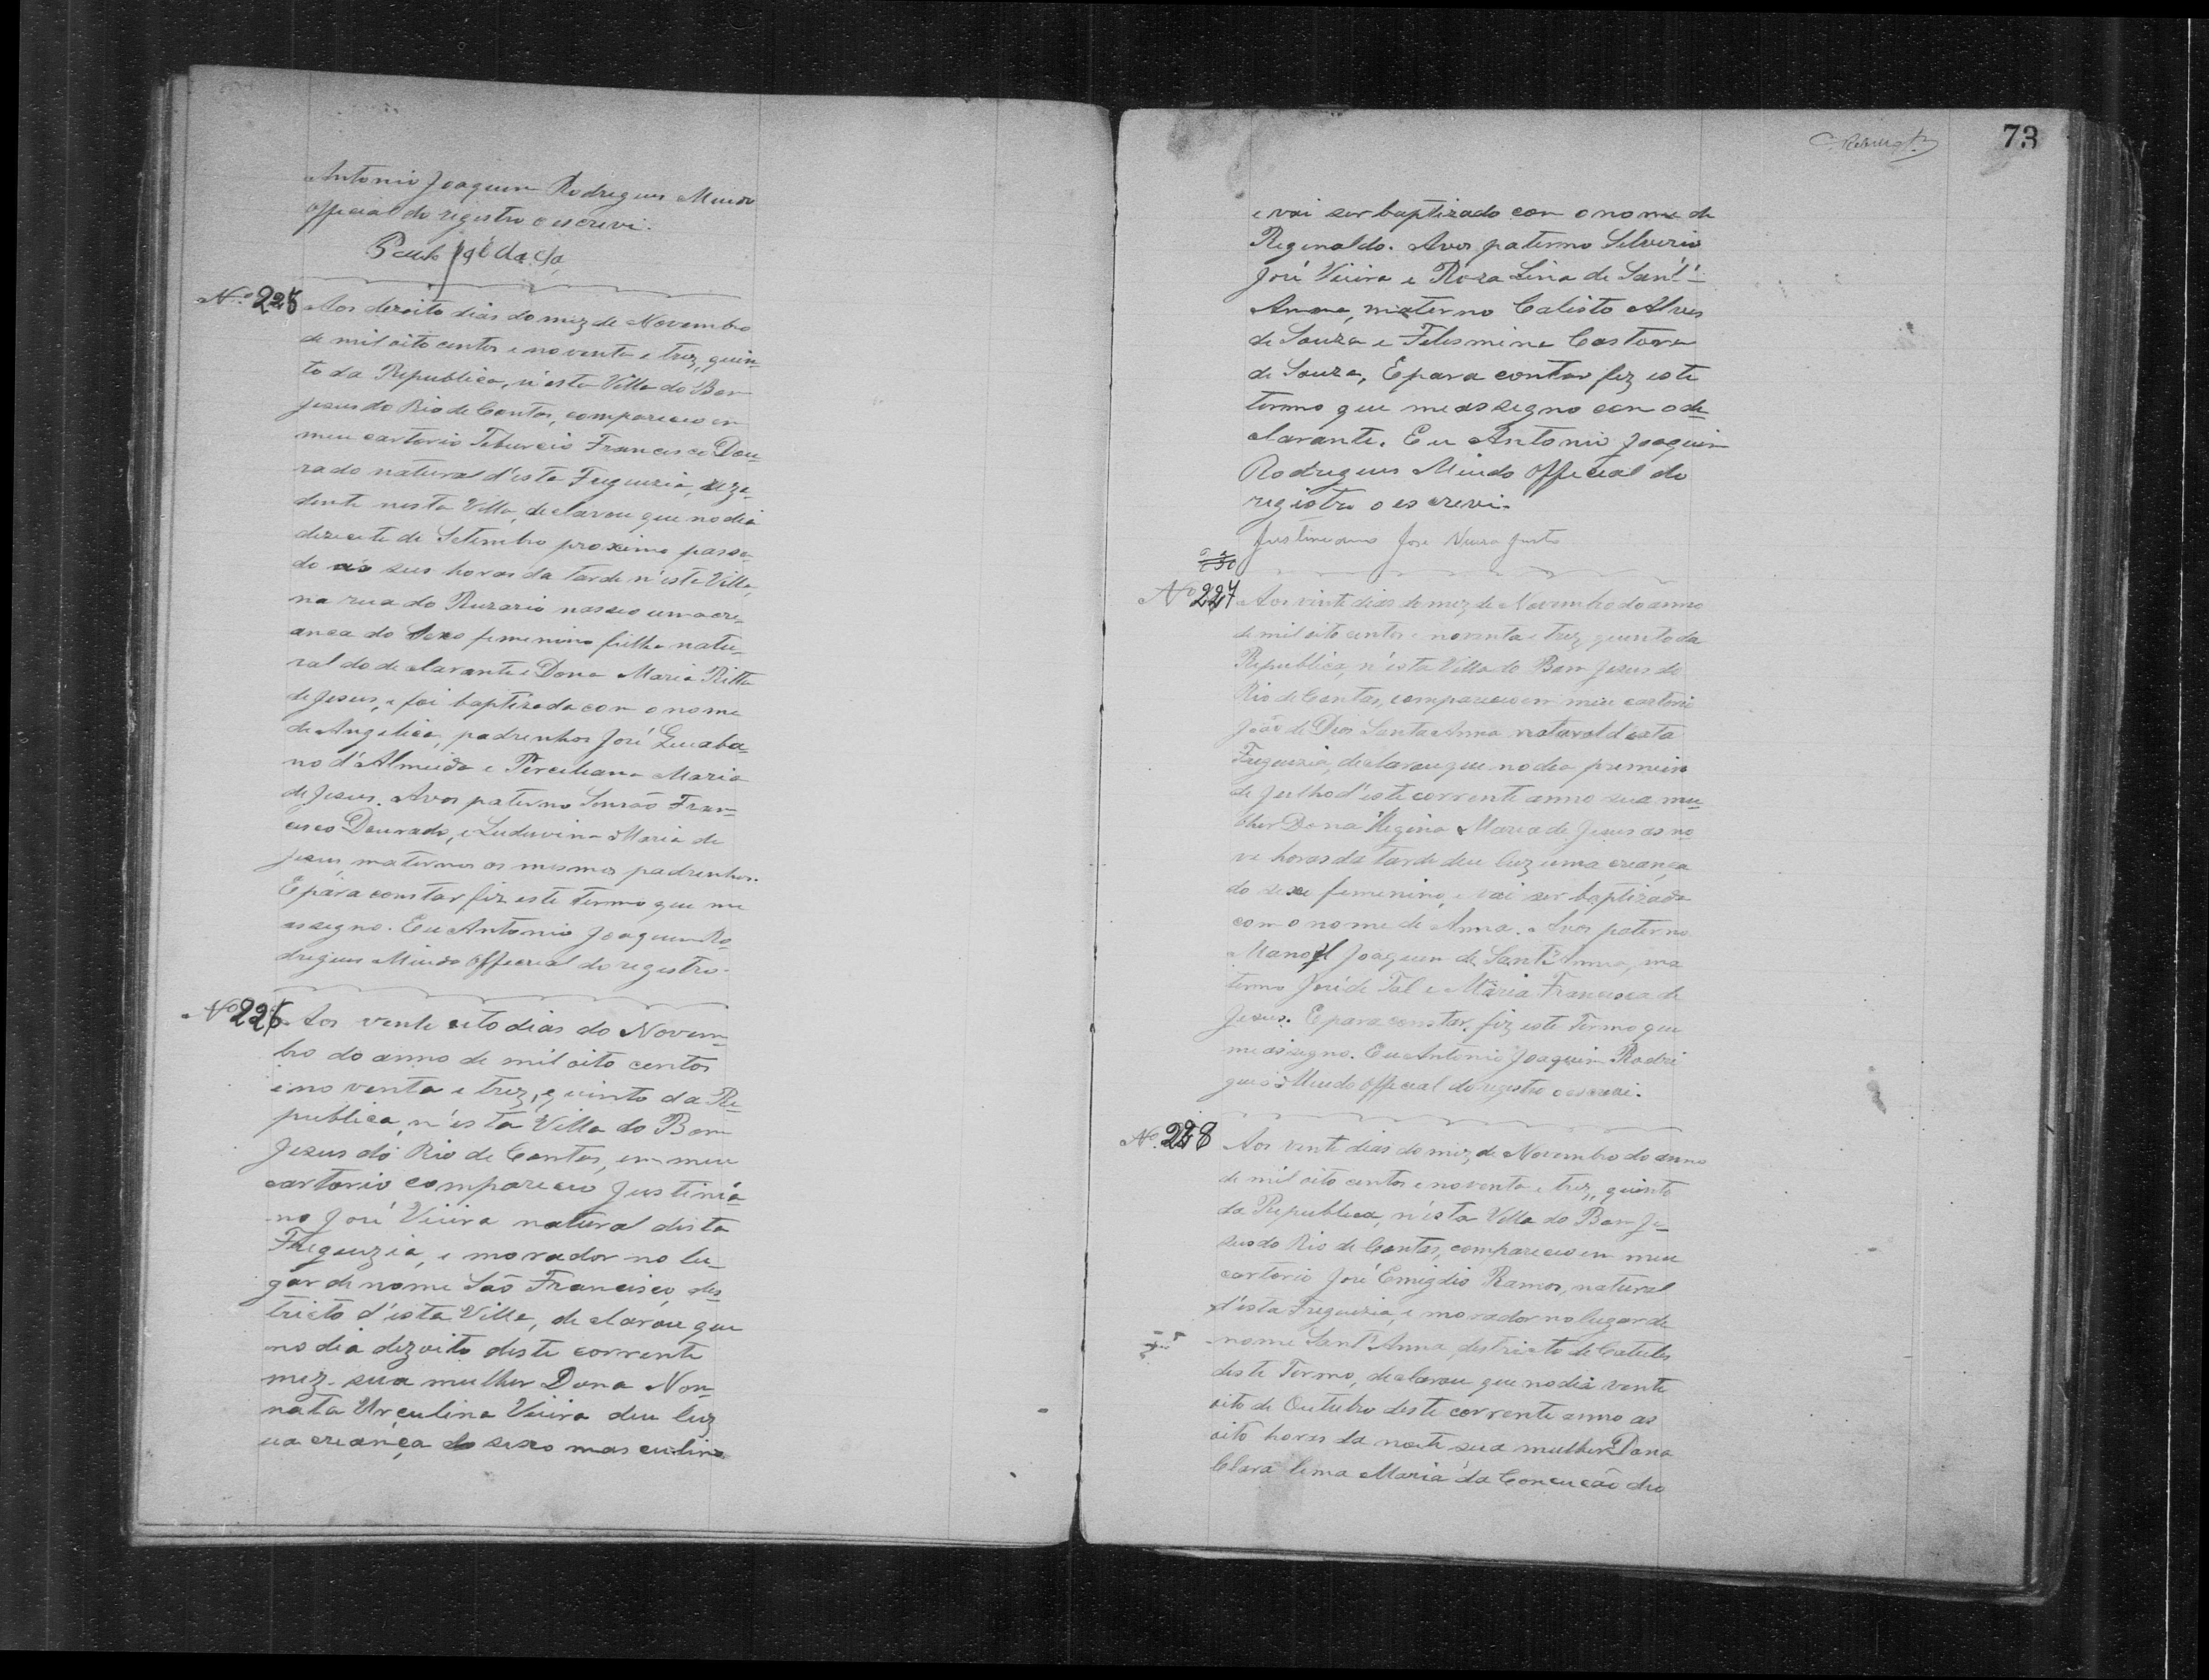 Antonio Joaquim Rodrigues Miudo
official do registro o escrevi.
Paulo José da
Nº 225 Aos dezoito dias do mez de Novembro
de mil oito centos e noventa e trez, quin-
to da Republica, n'esta Villa do Bom
Jesus do Rio de Contas, compareceo em
meu cartorio Teburcio Francisco Dou-
rado natural d'esta Freguezia, reze-
dente nesta Villa, declarou que no dia
dezesete de Setembro proximo passa-
do as seis horas da tarde n'esta Villa,
na rua do Ruzario nasceo uma cre-
ança do sexo femenino filha natu-
ral do declarante e Dona Maria Ritta
de Jesus, e foi baptizada com o nome
de Angelica, padrenhos José
no d'Almeida e Perciliana Maria
de Jesus. Avos paterno Simião Fran-
cisco Dourado, e Luduvina Maria de
Jesus, maternos os mesmos padrenhos.
E para constar fiz este termo que me
assegno. Eu Antonio Joaquim Ro-
drigues Miudo Official do registro.
Nº 226 Aos vente oito dias do Novem-
bro do anno de mil oito centos
e noventa e trez, quinto da Re-
publica, n'esta Villa do Bom
Jesus do Rio de Contas, em meu
cartorio compareceo Justinia-
no José Vieira natural desta
Freguezia, e morador no lu-
gar de nome São Francisco, des-
tricto d'esta Villa, declarou que
no dia dezoito deste corrente
mez sua mulher Dona Non-
nata Urçulina Vieira deu luz
ua creança do sexo masculino
73
e vai ser baptizado com o nome de
Reginaldo. Avos paterno Silverio
José Vieira e Roza Lina de Sant'-
Anna, materno Calisto Alves
de Souza e Felesmina Castora
de Souza, E para contar fiz este
termo que me assegno com o de-
clarante. Eu Antonio Joaquim
Rodrigues Miudo Official do
registro o escrevi.
Justiniano Jose Vieira
Nº 227 Aos vinte dias do mez de Novembro do anno
de mil oito centos e noventa e trez quinto da
Republica, n'esta Villa do Bom Jesus do
Rio de Contas, compareceo em meu cartorio
João de Deos Santa Anna natural d'esta
Freguezia, declarou que no dia premeiro
de Julho d'este corrente anno sua mu-
lher Dona Regina Maria de Jesus as no
ve horas da tarde deu luz uma creança
do sexo femenino, e vai ser baptizada
com o nome de Anna. Avos paterno
Manoel Joaquim de Sant'Anna, ma
terno José de Tal e Maria Francisca de
Jesus. E para constar, fiz este Termo que
me assegno. Eu Antonio Joaquim Rodri
gues Miudo official do registro o escrevi.
Nº 228 Aos vente dias do mez de Novembro do anno
de mil oito centos e noventa e trez, quinto
da Republica, n'esta Villa do Bom Je-
sus do Rio de Contas, compareceo em meu
cartorio José Emigdio Ramos, natural
d'esta Freguezia, e morador no lugar de
nome Sant'Anna, destricto de Catules
deste Termo, declarou que no dia vente
oito de Outubro deste corrente anno as
oito horas da noite sua mulher Dona
Clara lina Maria da Conceicão deo